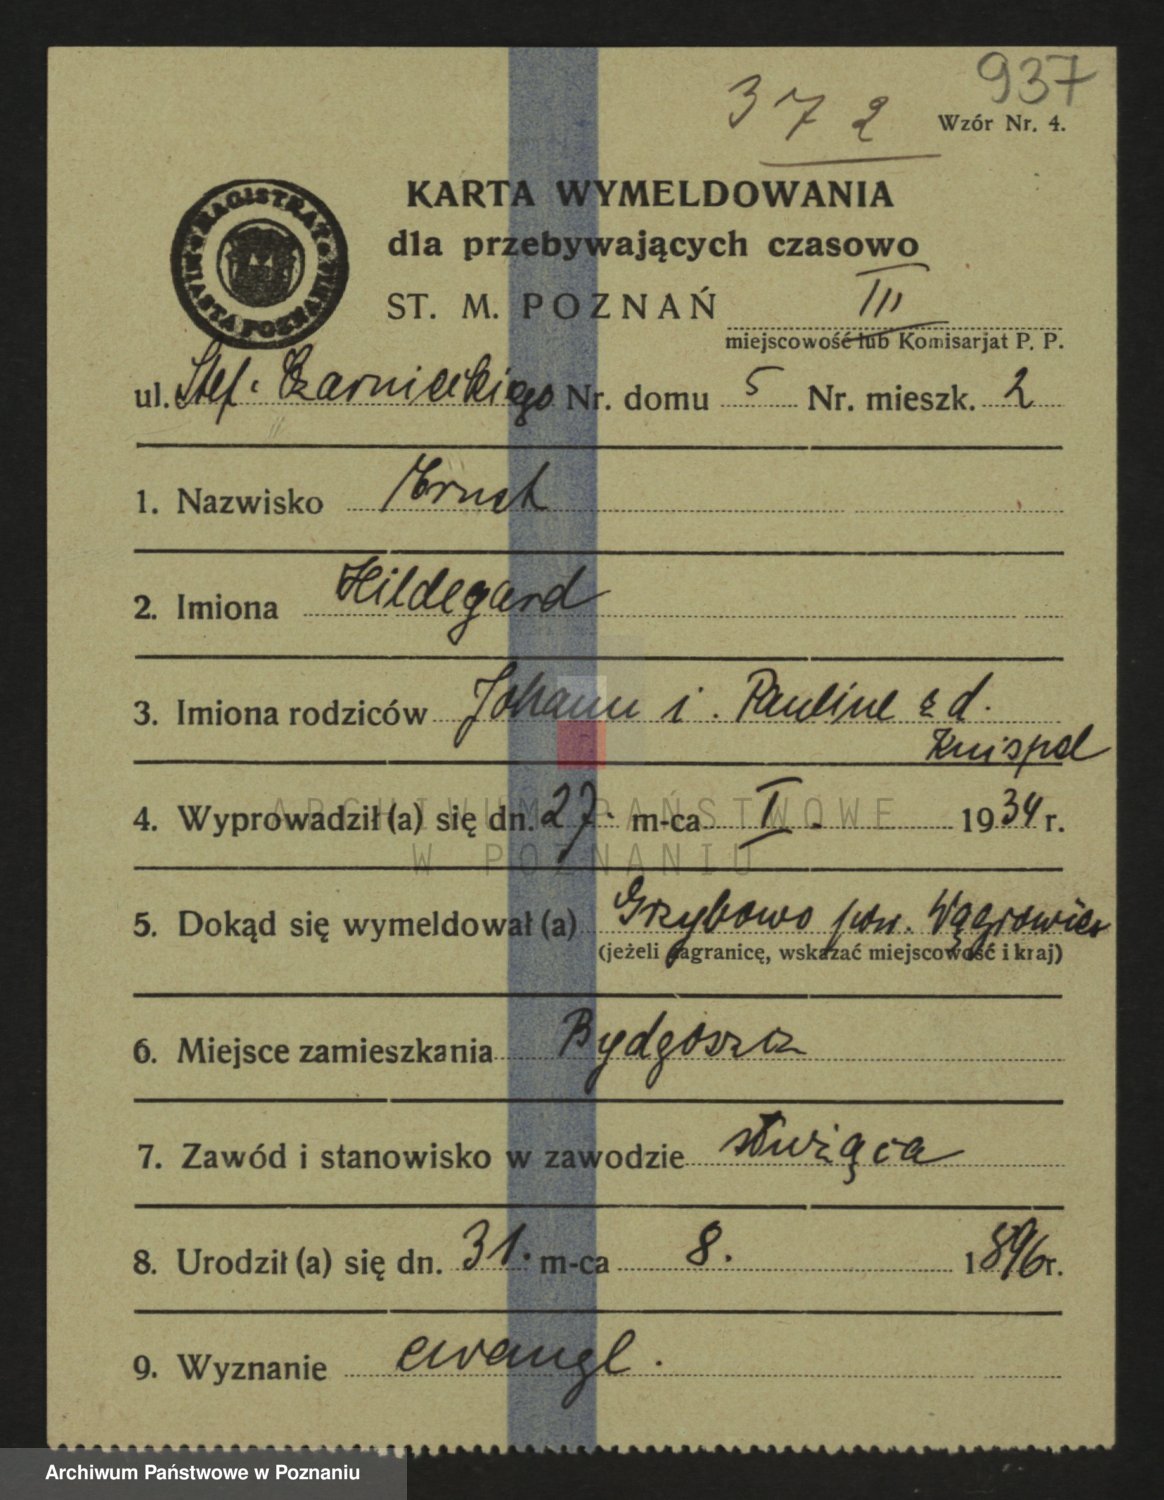 937
372
Wzór Nr. 4.
MAGISTRAT MIASTA POZNANIA
KARTA WYMELDOWANIA
dla przebywających czasowo
ST. M. POZNAŃ III
miejscowość lub Komisarjat P. P.
ul. Stef. Czarnieckiego Nr. domu 5 Nr. mieszk. 2
1. Nazwisko Ernst
2. Imiona Hildegard
3. Imiona rodziców Johann i. Pauline z d.
Knispel
4. Wyprowadził (a) się dn. 27. m-ca I. 1934 r.
ARCHIWUM PAŃSTWOWE
W POZNANIU
5. Dokąd się wymeldował (a) Grzybowo pow. Wągrowiec
(jeżeli zagranicę, wskazać miejscowość i kraj)
6. Miejsce zamieszkania Bydgoszcz
7. Zawód i stanowisko w zawodzie służąca
8. Urodził (a) się dn. 31. m-ca 8. 1896 r.
9. Wyznanie ewangl.
Archiwum Państwowe w Poznaniu